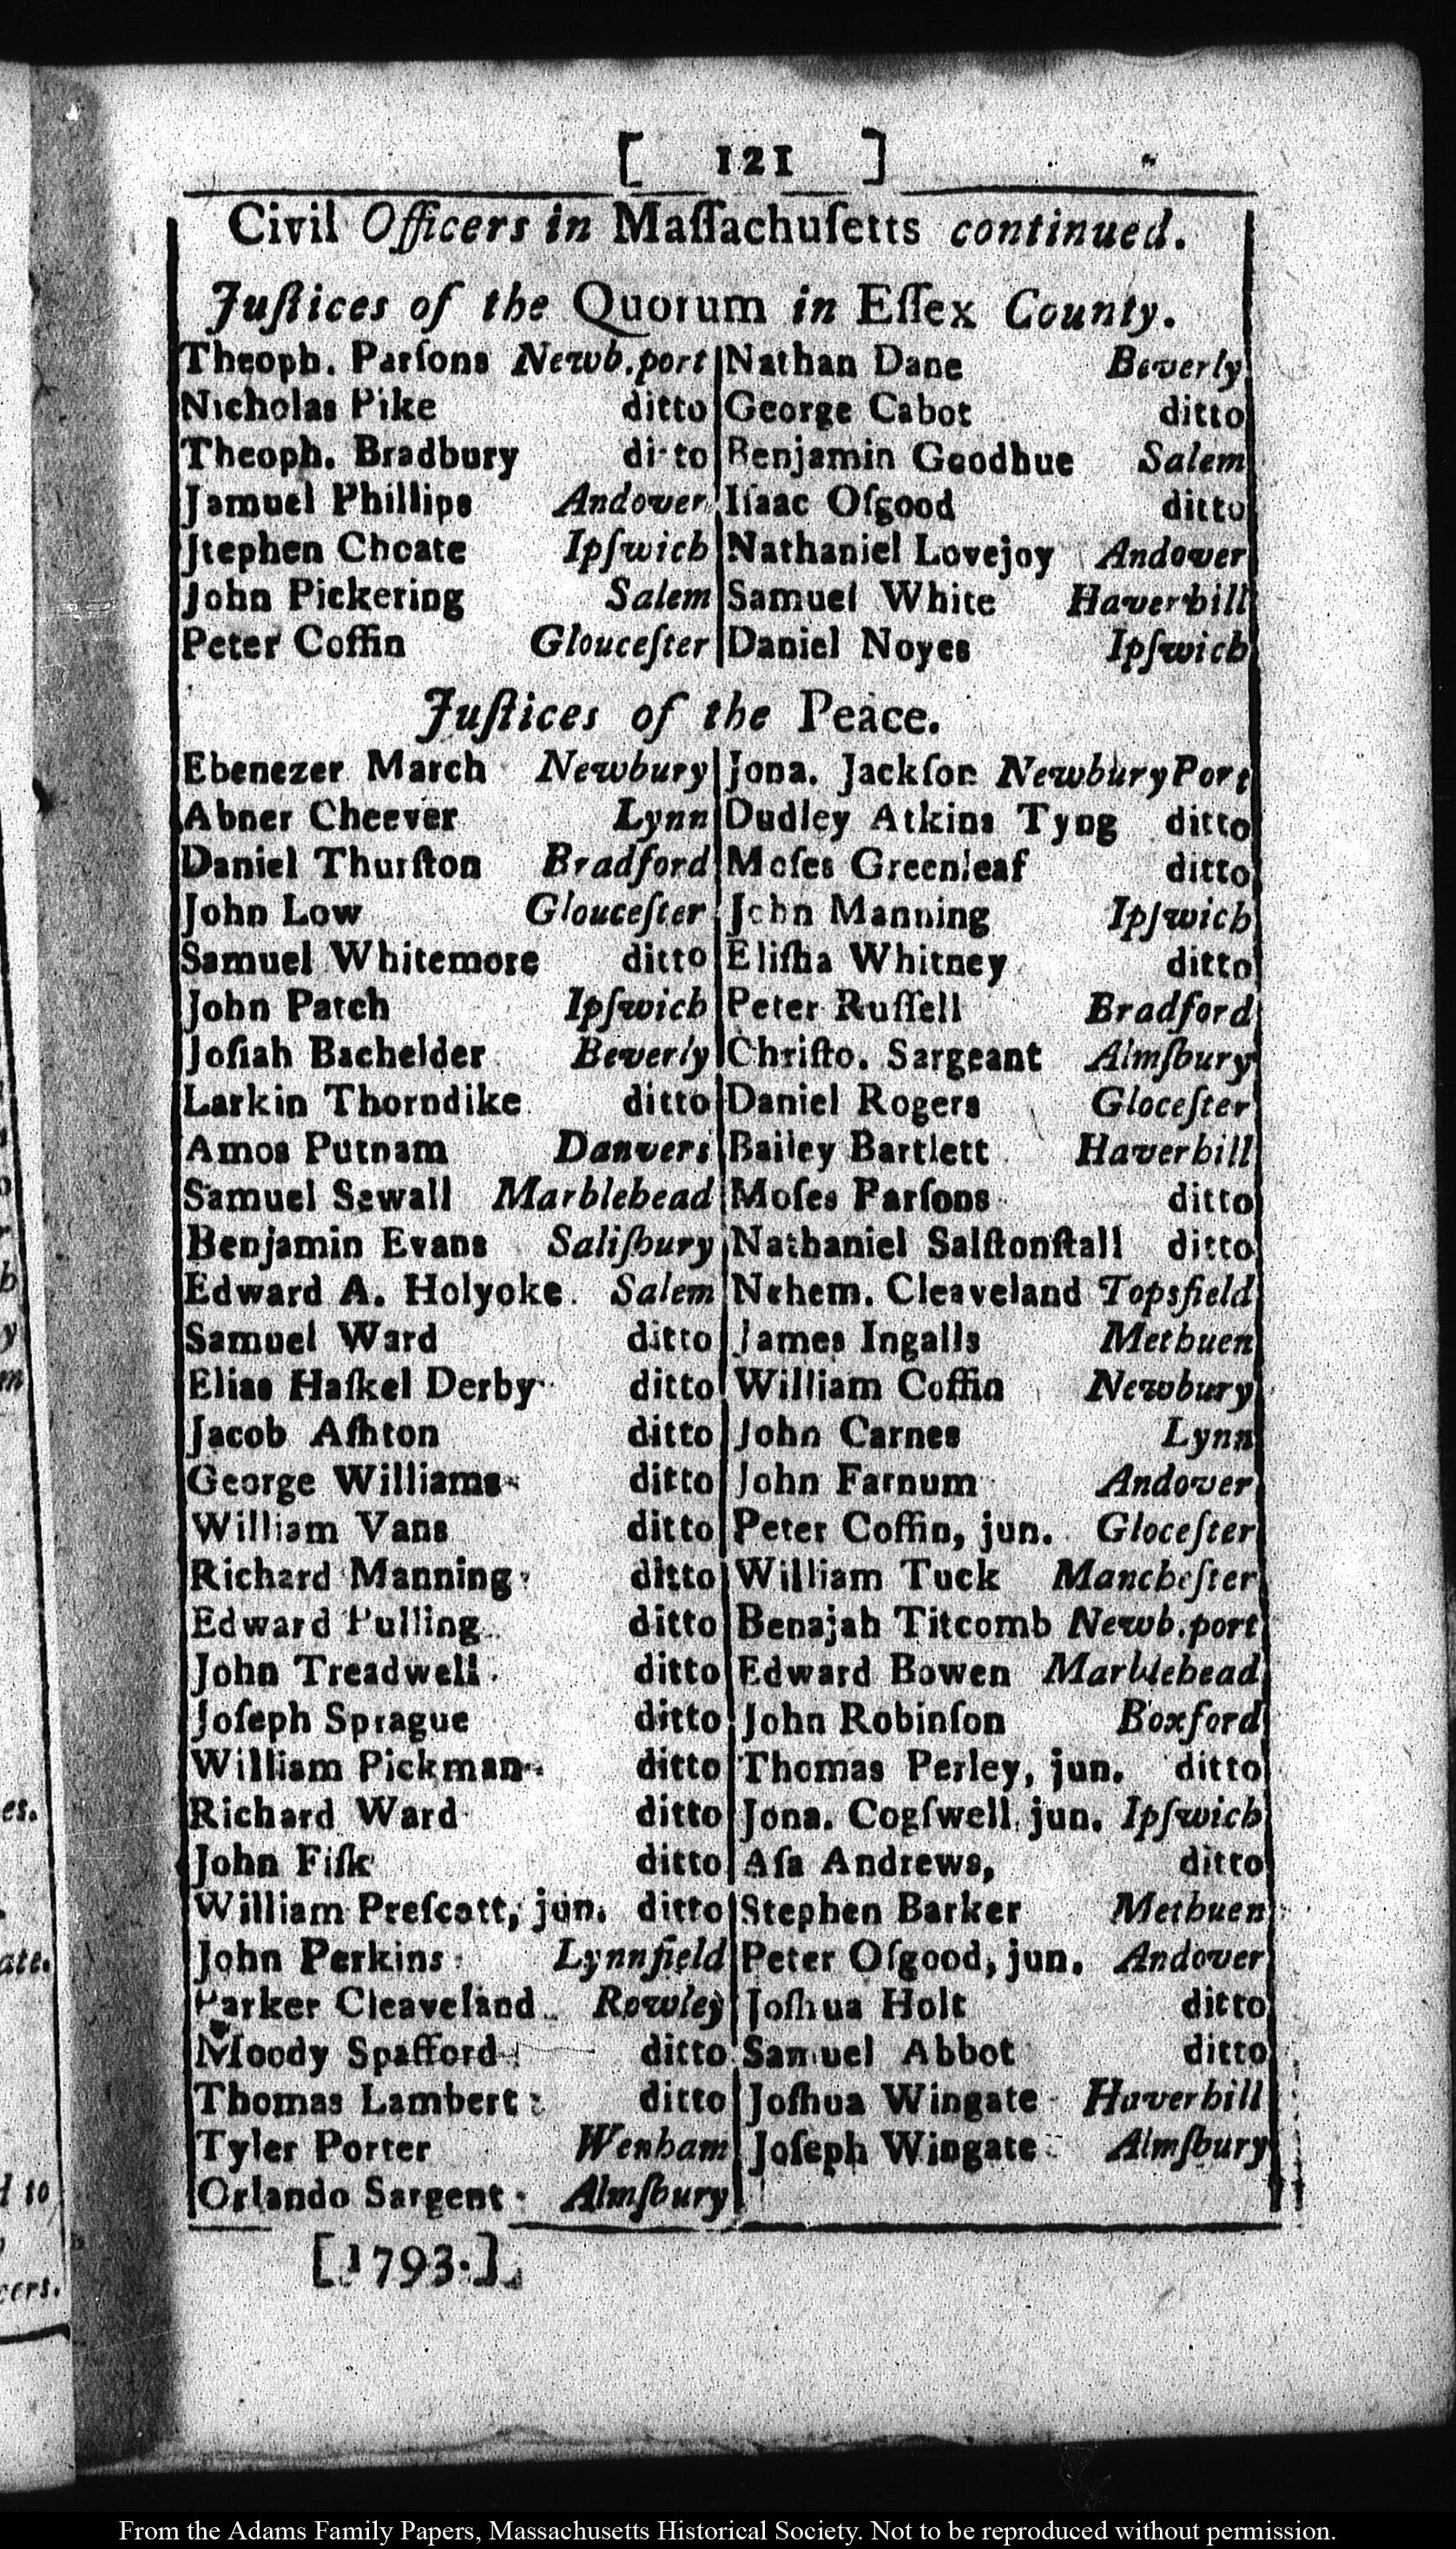 [ 121 ]
Civil Officers in Maſſachuſetts continued.
Juſtices of the Quorum in Eſſex County.
Theoph. Parſons Newb.port
Nicholas Pike ditto
Theoph. Bradbury ditto
Samuel Phillips Andover
Stephen Choate Ipſwich
John Pickering Salem
Peter Coffin Glouceſter
Nathan Dane Beverly
George Cabot ditto
Benjamin Goodhue Salem
Iſaac Oſgood ditto
Nathaniel Lovejoy Andover
Samuel White Haverhill
Daniel Noyes Ipſwich
Juſtices of the Peace.
Ebenezer March Newbury
Abner Cheever Lynn
Daniel Thurſton Bradford
John Low Glouceſter
Samuel Whitemore ditto
John Patch Ipſwich
Joſiah Bachelder Beverly
Larkin Thorndike ditto
Amos Putnam Danvers
Samuel Sewall Marblehead
Benjamin Evans Saliſbury
Edward A. Holyoke Salem
Samuel Ward ditto
Elias Haſkel Derby ditto
Jacob Aſhton ditto
George Williams ditto
William Vans ditto
Richard Manning ditto
Edward Pulling ditto
John Treadwell ditto
Joſeph Sprague ditto
William Pickman ditto
Richard Ward ditto
John Fiſk ditto
William Preſcott, jun. ditto
John Perkins Lynnfield
Parker Cleaveland Rowley
Moody Spafford ditto
Thomas Lambert ditto
Tyler Porter Wenham
Orlando Sargent Almſbury
Jona. Jackſon NewburyPort
Dudley Atkins Tyng ditto
Moſes Greenleaf ditto
John Manning Ipſwich
Eliſha Whitney ditto
Peter Ruſſell Bradford
Chriſto. Sargeant Almſbury
Daniel Rogers Gloceſter
Bailey Bartlett Haverhill
Moſes Parſons ditto
Nathaniel Salſtonſtall ditto
Nehem. Cleaveland Topsfield
James Ingalls Methuen
William Coffin Newbury
John Carnes Lynn
John Farnum Andover
Peter Coffin, jun. Gloceſter
William Tuck Mancheſter
Benajah Titcomb Newb.port
Edward Bowen Marblehead
John Robinſon Boxford
Thomas Perley, jun. ditto
Jona. Cogſwell jun. Ipſwich
Aſa Andrews, ditto
Stephen Barker Methuen
Peter Oſgood, jun. Andover
Joſhua Holt ditto
Samuel Abbot ditto
Joſhua Wingate Haverhill
Joſeph Wingate Almſbury
[1793.]
From the Adams Family Papers, Massachusetts Historical Society. Not to be reproduced without permission.